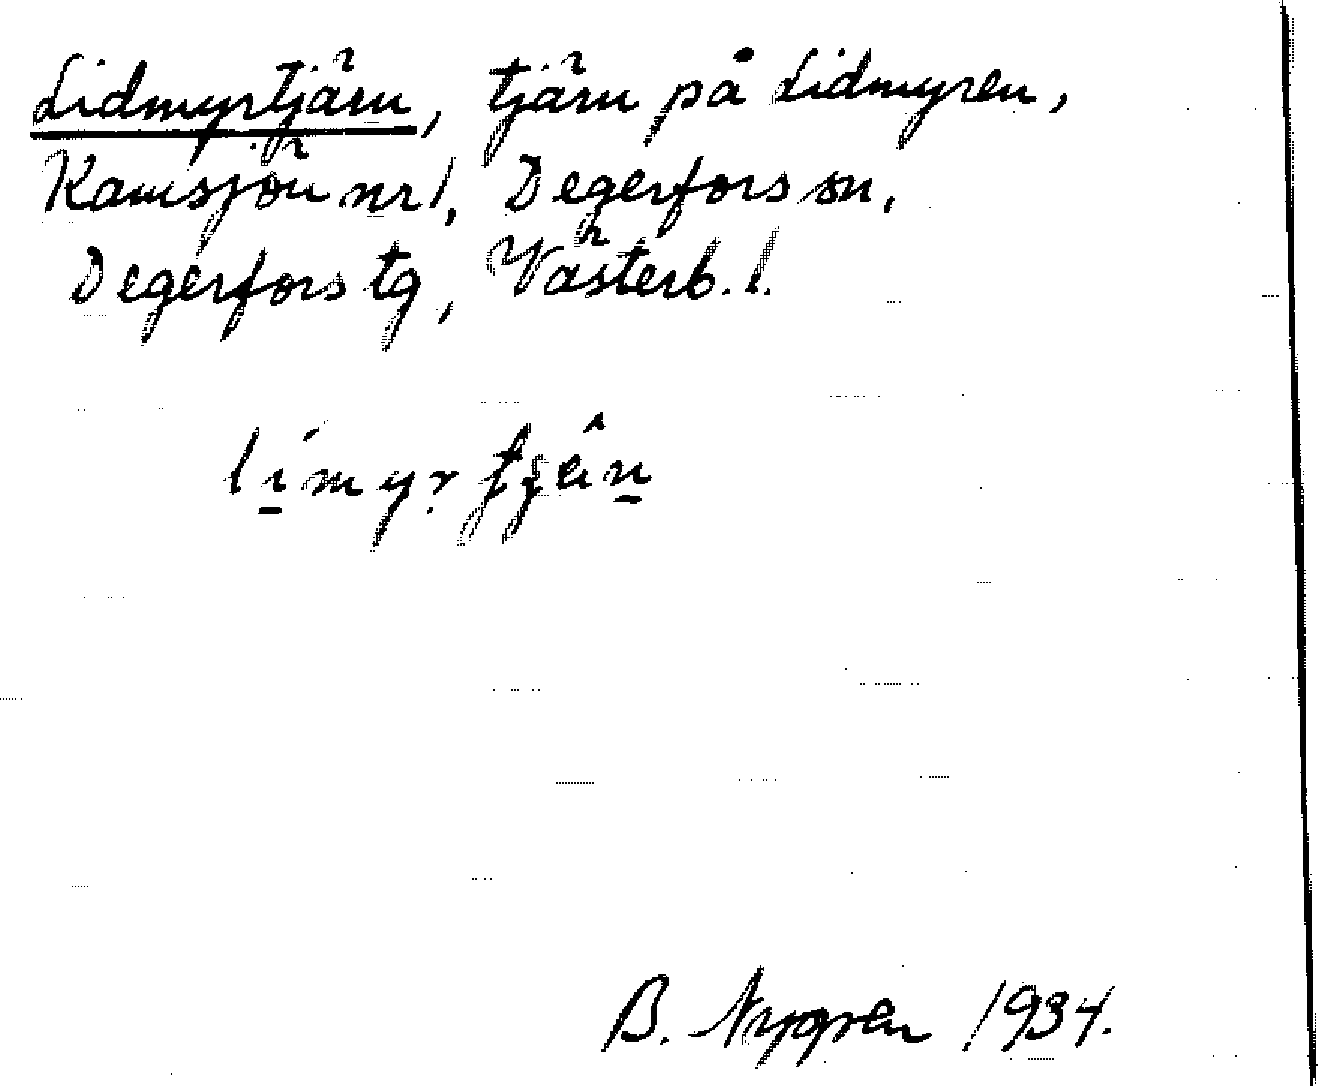 Lidmyrtjärn, tjärn på Lidmyren,
Kamsjön nr 1, Degerfors sn,
Degerfors tg, Västerb. l.
B. Nygren 1934.